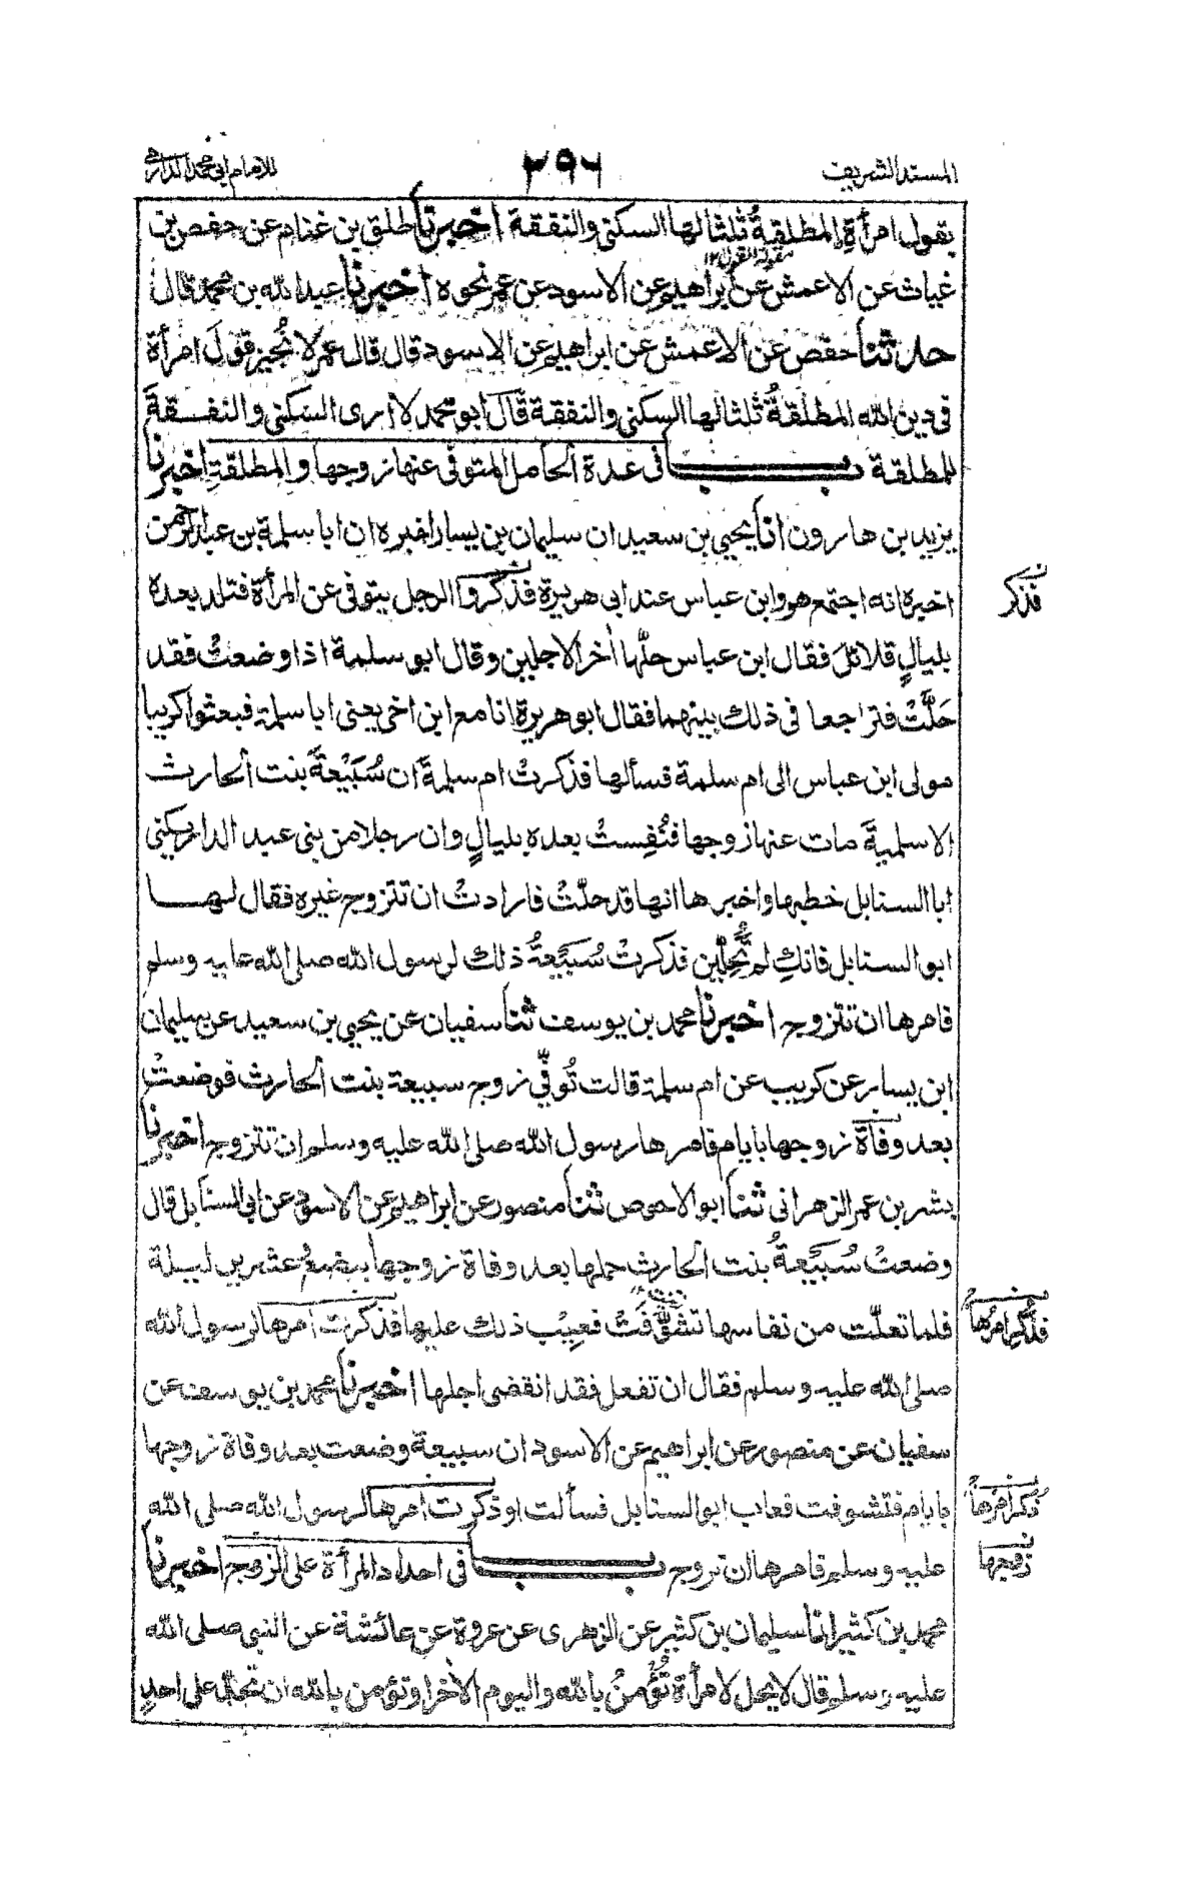 المسند الشريف
٢٩٦
للامام ابي محمد الدارمي
بقول امرأة المطلقةُ ثلثا لها السكنى والنفقة اخبرنا طلق بن غنام عن حفص بن
مقولة القول ١٢
غياث عن الاعمش عن ابراهيم عن الاسود عن عمر نحوه اخبرنا عبد الله بن محمد قال
حدثنا حفص عن الاعمش عن ابراهيم عن الاسود قال قال عمر لا نُجيز قولَ امرأة
في دين الله المطلقةُ ثلثا لها السكنى والنفقة قال ابو محمد لا ارى السكنى والنفقةَ
للمطلقة باب في عدة الحامل المتوفى عنها زوجها والمطلقةِ اخبرنا
يزيد بن هارون انا يحيى بن سعيد ان سليمان بن يسار اخبره ان ابا سلمة بن عبد الرحمن
اخبره انه اجتمع هو وابن عباس عند ابي هريرة فذكروا الرجل يتوفى عن المرأة فتلد بعده
فذكر
بليالٍ قلائلَ فقال ابن عباس حلُّها اٰخر الاجلين وقال ابو سلمة اذا وضعتْ فقد
حَلَّتْ فتراجعا في ذلك بينهما فقال ابو هريرة انا مع ابن اخي يعني ابا سلمة فبعثوا كريبا
مولى ابن عباس الى ام سلمة فسألها فذكرتْ ام سلمةَ ان سُبَيْعةَ بنت الحارث
الاسلميةَ مات عنها زوجها فنُفِستْ بعده بليالٍ وان رجلا من بني عبد الدار يكنى
ابا السنابل خطبها واخبرها انها قد حلّتْ فارادتْ ان تتزوج غيره فقال لها
ابو السنابل فانكِ لم تُحِلّين فذكرتْ سُبَيعةُ ذلك لرسول الله صلى الله عليه وسلم
فامرها ان تتزوج اخبرنا محمد بن يوسف ثنا سفيان عن يحيى بن سعيد عن سليمان
ابن يسار عن كريب عن ام سلمة قالت تُوفّي زوج سبيعة بنت الحارث فوضعتْ
بعد وفاة زوجها بايام فامرها رسول الله صلى الله عليه وسلم ان تتزوج اخبرنا
بشر بن عمر الزهراني ثنا ابو الاحوص ثنا منصور عن ابراهيم عن الاسود عن ابي السنابل قال
وضعتْ سُبَيعةُ بنت الحارث حملها بعد وفاة زوجها ببضع وعشرين ليلة
فلما تعلّت من نفاسها تشوّفتْ فعِيْب ذلك عليها فذكرت امرها لرسول الله
فذُكِر امرُها
صلى الله عليه وسلم فقال ان تفعل فقد انقضى اجلها اخبرنا محمد بن يوسف عن
سفيان عن منصور عن ابراهيم عن الاسود ان سبيعة وضعت بعد وفاة زوجها
بايام فتشوفت فعاب ابو السنابل فسألت او ذكرت امرها لرسول الله صلى الله
ذكر امرُها
عليه وسلم فامرها ان تزوج باب في احداد المرأة على الزوج اخبرنا
زوجها
محمد بن كثير انا سليمان بن كثير عن الزهري عن عروة عن عائشة عن النبي صلى الله
عليه وسلم قال لا يحل لامرأة تُؤمنُ بالله واليوم الاٰخر او تؤمن بالله ان تحدّ على احدٍ